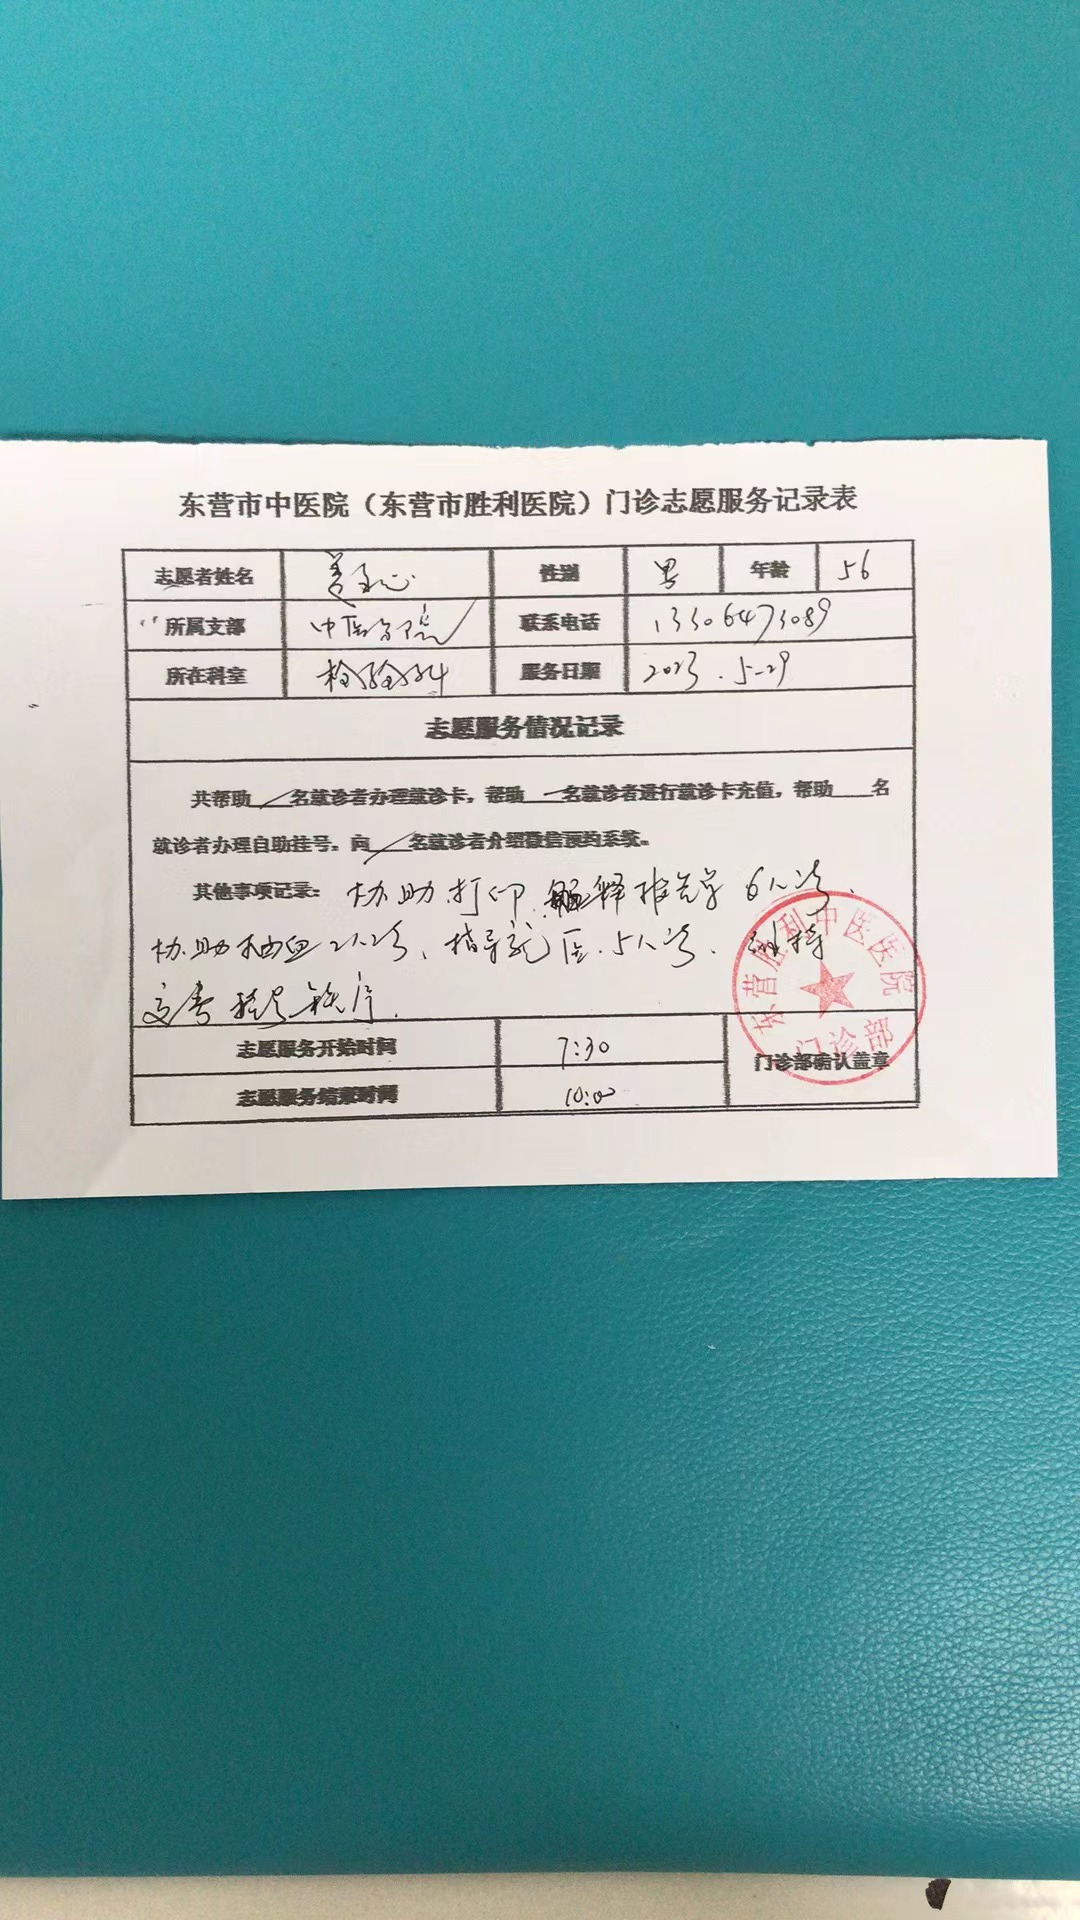 东营市中医院（东营市胜利医院）门诊志愿服务记录表
志愿者姓名 性别 男 年龄 56
所属支部 中医分院 联系电话 13306473089
所在科室 检验科 服务日期 2023.5-29
志愿服务情况记录
共帮助 名就诊者办理就诊卡，帮助 名就诊者进行就诊卡充值，帮助 名
就诊者办理自助挂号。向 名就诊者介绍微信预约系统。
其他事项记录：协助打印 解释报告单6人次、
协助抽血2人2次、指导就医.5人次. 维持
秩序.
志愿服务开始时间 7:30
门诊部确认盖章
志愿服务结束时间 10:00
东营胜利中医医院
门诊部